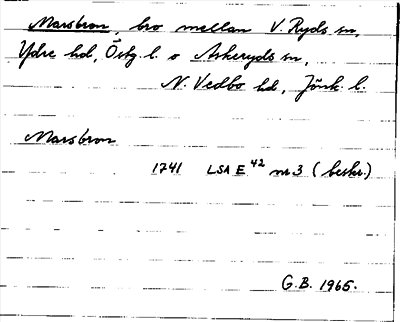 Marsbron, bro mellan V. Ryds sn,
Ydre hd, Östg. l. o Askeryds sn,
N. Vedbo hd, Jönk. l.
Marsbron
1741 LSA E 42 nr 3 (beskr.)
G.B. 1965.